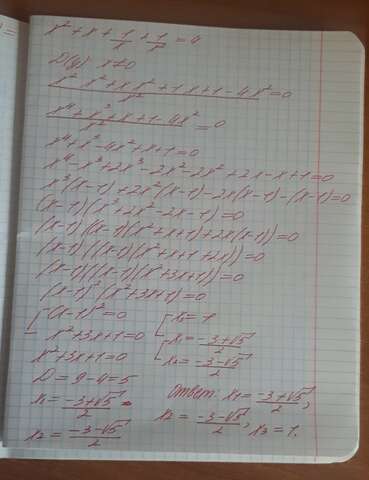 x² + x + 1/x + 1/x² = 4
D(y): x≠0
(x² · x² + x · x² + 1 · x + 1 - 4x²)/x² = 0
(x⁴ + x³ + x + 1 - 4x²)/x² = 0
x⁴ + x³ - 4x² + x + 1 = 0
x⁴ - x³ + 2x³ - 2x² - 2x² + 2x - x + 1 = 0
x³(x-1) + 2x²(x-1) - 2x(x-1) - (x-1) = 0
(x-1)(x³ + 2x² - 2x - 1) = 0
(x-1)((x-1)(x² + x + 1) + 2x(x-1)) = 0
(x-1)((x-1)(x² + x + 1 + 2x)) = 0
(x-1)((x-1)(x² + 3x + 1)) = 0
(x-1)²(x² + 3x + 1) = 0
[(x-1)² = 0
x² + 3x + 1 = 0
x² + 3x + 1 = 0
D = 9 - 4 = 5
x₁ = (-3 + √5)/2
x₂ = (-3 - √5)/2
[x₃ = 1
[x₁ = (-3 + √5)/2
x₂ = (-3 - √5)/2
Ответ: x₁ = (-3 + √5)/2;
x₂ = (-3 - √5)/2; x₃ = 1.